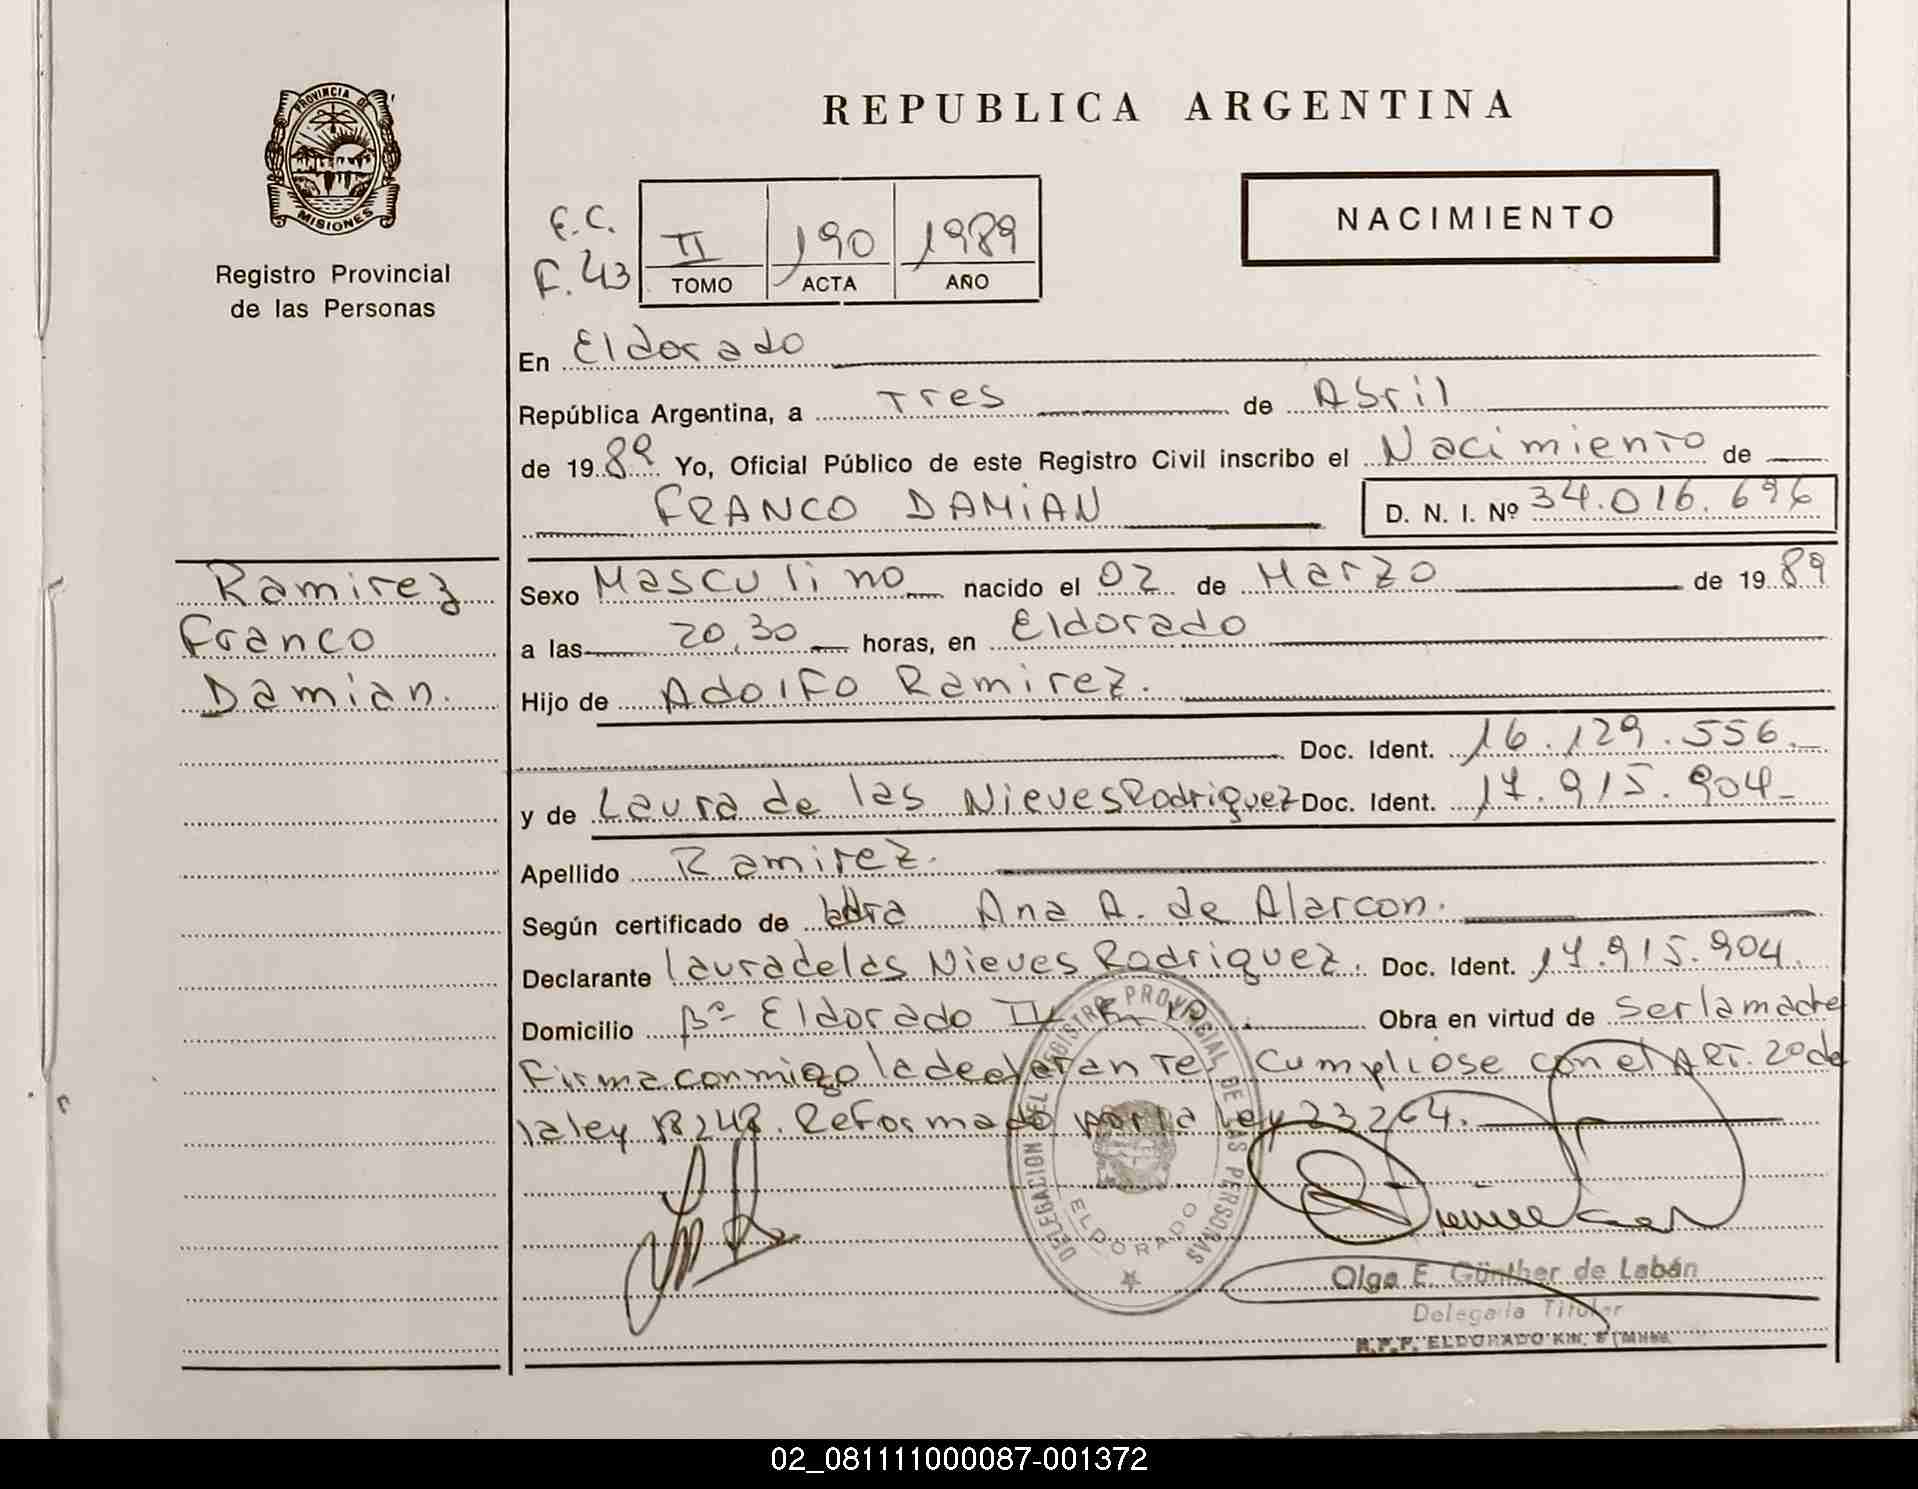 PROVINCIA DE
MISIONES
Registro Provincial
de las Personas
REPUBLICA ARGENTINA
NACIMIENTO
F.C.
F. 43
II 190 1989
TOMO ACTA AÑO
En Eldorado
República Argentina, a Tres de Abril
de 1989 Yo, Oficial Público de este Registro Civil inscribo el Nacimiento de
FRANCO DAMIAN D. N. I. Nº 34.016.696
Ramirez
Franco
Damian.
Sexo Masculino nacido el 02 de Marzo de 1989
a las 20,30 horas, en Eldorado
Hijo de Adolfo Ramirez.
Doc. Ident. 16.129.556.
y de Laura de las Nieves Rodriguez Doc. Ident. 17.915.904
Apellido Ramirez.
Según certificado de Ana A. de Alarcon.
Declarante Laura de las Nieves Rodriguez. Doc. Ident. 17.915.904.
Domicilio Bº Eldorado II Obra en virtud de ser la madre
Firma conmigo la declarante. Cumpliose con el ART. 20 de
la ley 18248. Reformado por la Ley 23264.
DELEGACION DEL REGISTRO PROVINCIAL DE LAS PERSONAS
ELDORADO
Olga E. Günther de Labán
Delegada Titular
R.P.P. ELDORADO KM.
02_081111000087-001372